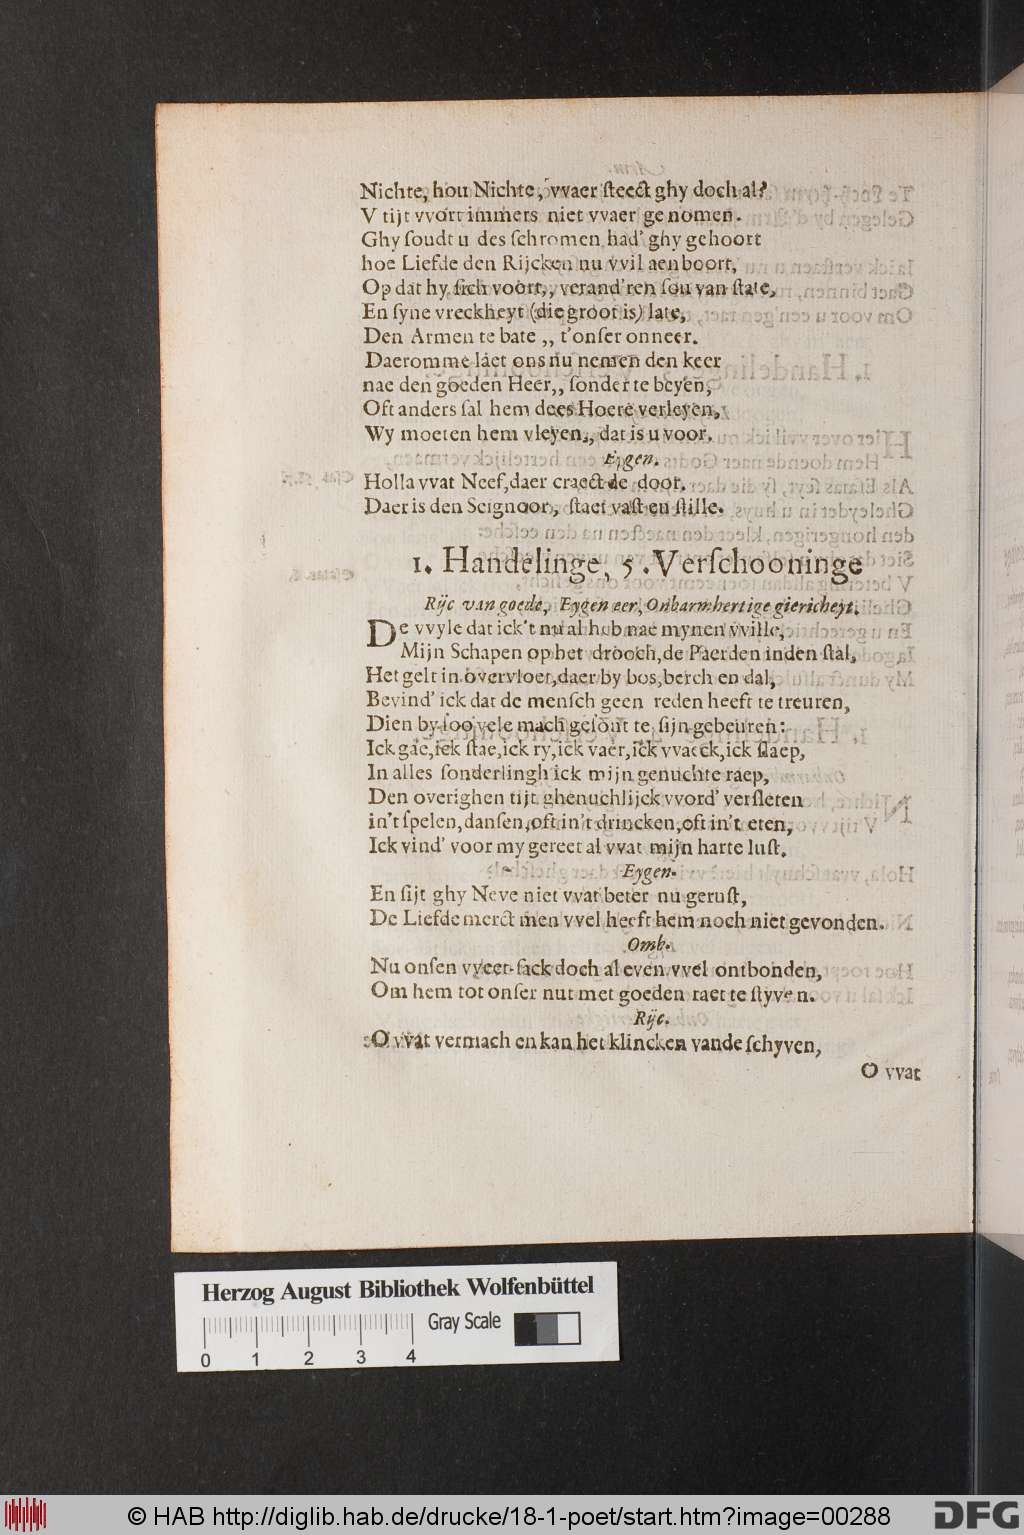 Nichte, hou Nichte, vvaer steect ghy doch al?
V tijt vvort immers niet vvaer genomen.
Ghy soudt u des schromen had' ghy gehoort
hoe Liefde den Rijcken nu vvil aenboort,
Op dat hy sich voort,, verand'ren sou van state,
En syne vreckheyt (die groot is) late,
Den Armen te bate ,, t'onser onneer.
Daeromme laet ons nu nemen den keer
nae den goeden Heer,, sonder te beyen,
Oft anders sal hem dees Hoere verleyen,
Wy moeten hem vleyen,, dat is u voor.
Eygen.
Holla vvat Neef, daer craect de door.
Daer is den Seignoor, staet vast en stille.
1. Handelinge, 5. Verschooninge
Rijc van goede, Eygen eer, Onbarmhertige giericheyt.
De vvyle dat ick't nu al heb nae mynen vville,
Mijn Schapen op het drooch, de Paerden inden stal,
Het gelt in overvloet, daer by bos, berch en dal,
Bevind' ick dat de mensch geen reden heeft te treuren,
Dien by soo vele mach gesont te sijn gebeuren:
Ick gae, ick stae, ick ry, ick vaer, ick vvaeck, ick slaep,
In alles sonderlingh ick mijn genuchte raep,
Den overighen tijt ghenuchlijck vvord' versleten
in't spelen, dansen, oft in't drincken, oft in't eten,
Ick vind' voor my gereet al vvat mijn harte lust.
Eygen.
En sijt ghy Neve niet vvat beter nu gerust,
De Liefde merct men vvel heeft hem noch niet gevonden.
Omb.
Nu onsen vveet-sack doch al even vvel ontbonden,
Om hem tot onser nut met goeden raet te styven.
Rijc.
O vvat vermach en kan het klincken vande schyven,
O vvat
Herzog August Bibliothek Wolfenbüttel
Gray Scale
0 1 2 3 4
© HAB http://diglib.hab.de/drucke/18-1-poet/start.htm?image=00288
DFG